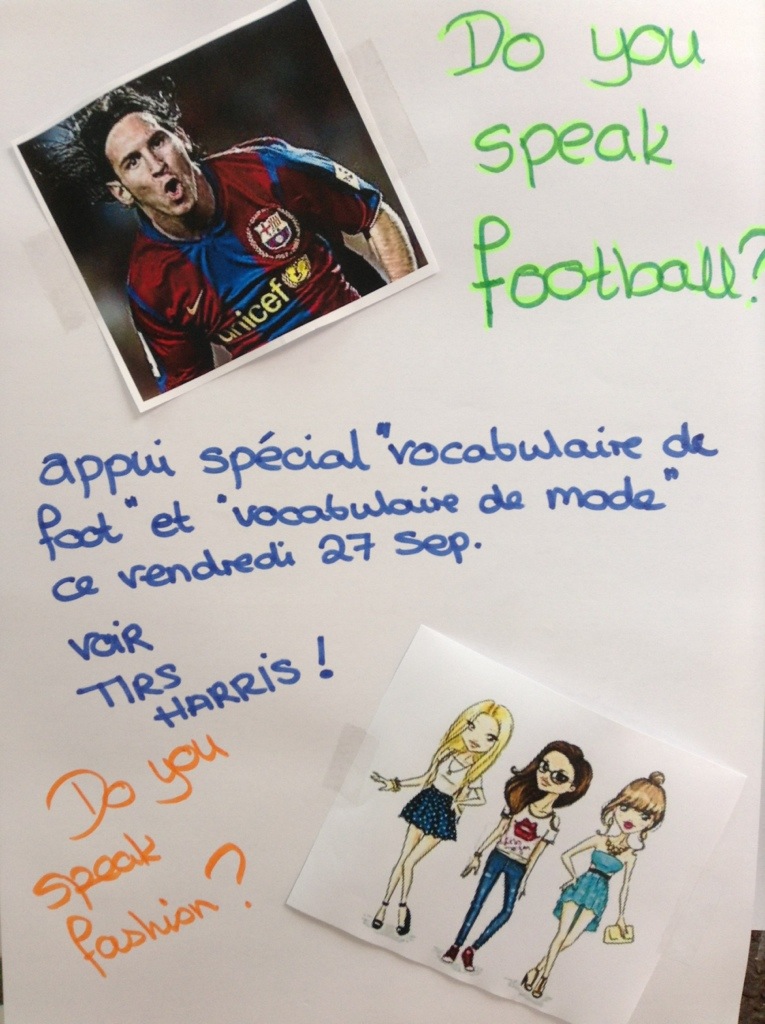 Do you
speak
football?
unicef
appui spécial "vocabulaire de
foot" et "vocabulaire de mode"
ce vendredi 27 Sep.
voir
MRS
HARRIS!
Do you
speak
fashion?